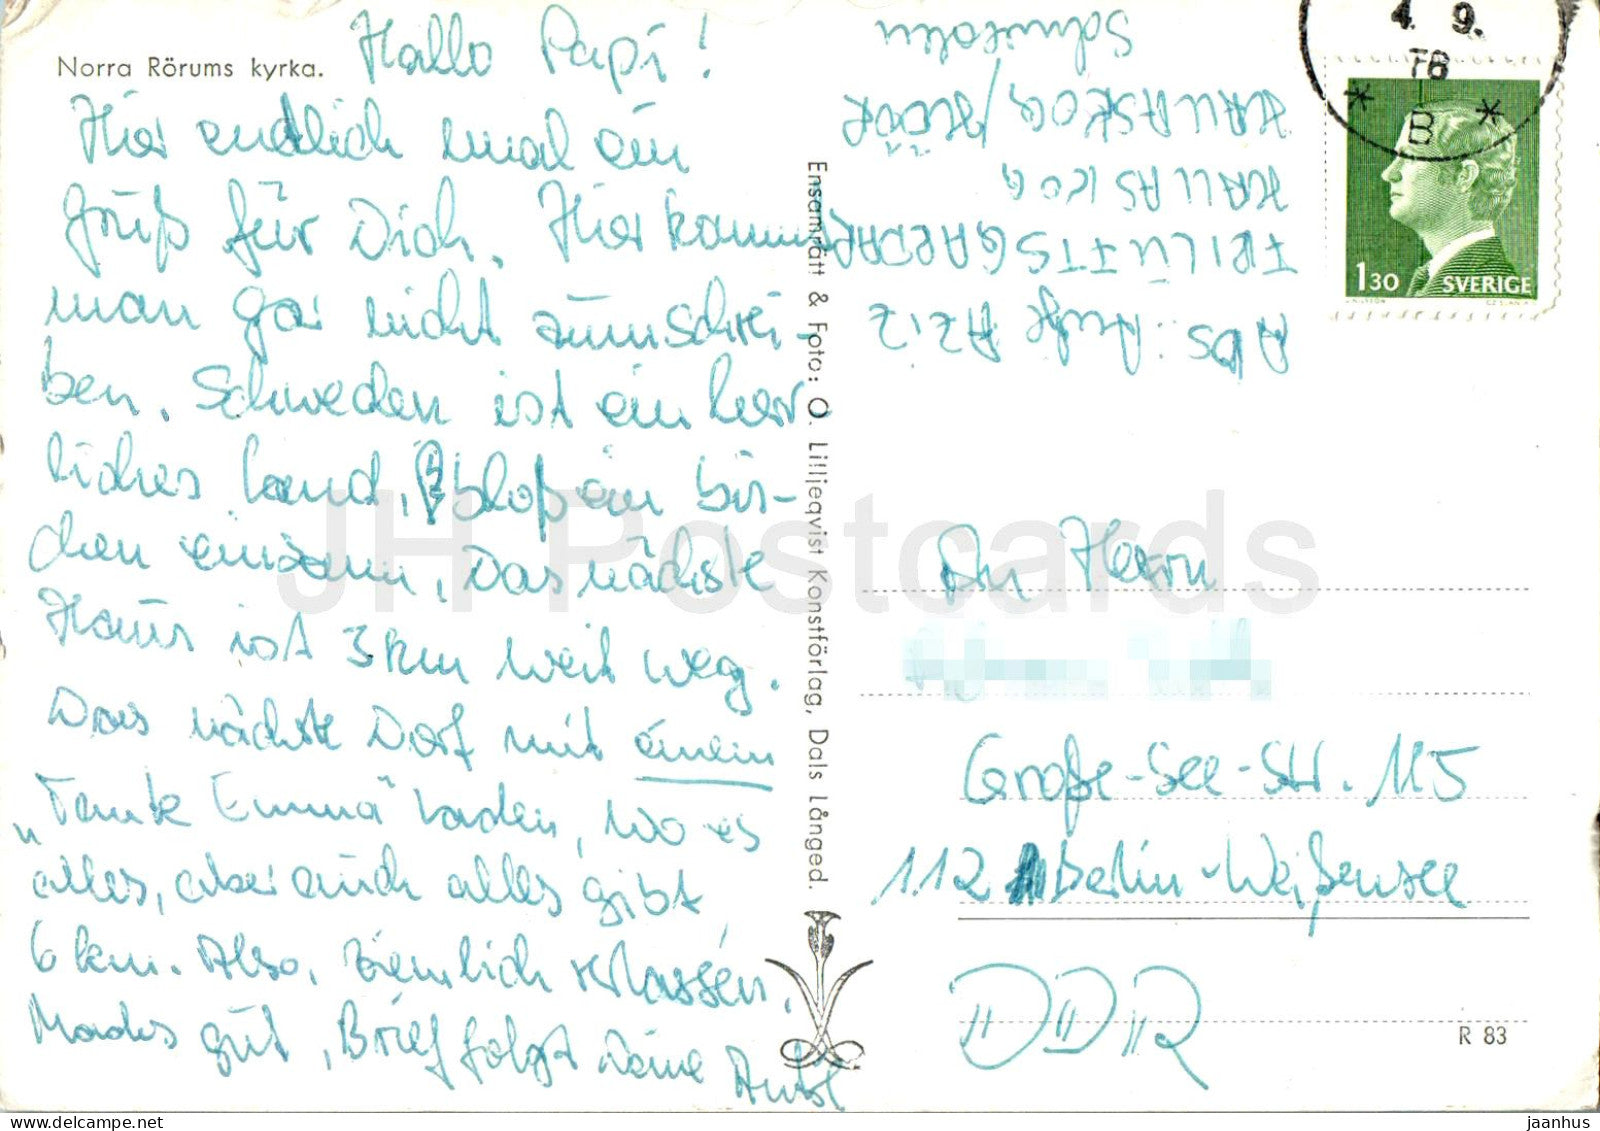 Norra Rörums kyrka.
Hallo Papi!
Hier endlich mal ein
Gruß für Dich. Hier kommt
man gar nicht zum Schrei-
ben. Schweden ist ein herr
liches Land, bloß ein bis-
chen einsam. Das nächste
Haus ist 3 km weit weg.
Das nächste Dorf mit einem
„Tante Emma" Laden, wo es
alles, aber auch alles gibt
6 km. Also, ziemlich verlassen.
Machs gut, Brief folgt Deine
Ensamrätt & Foto: O. Lilljeqvist Konstförlag, Dals Långed.
ABS: AZIZ
FRILUFTSGARDARD
KALLASKOG
KALLASKOG/HÖÖR
Schweden
4. 9.
76
* B *
130 SVERIGE
An Herrn
Große-See-Str. 115
112 Berlin-Weißensee
DDR
R 83
JH Postcards
www.delcampe.net
jaanhus